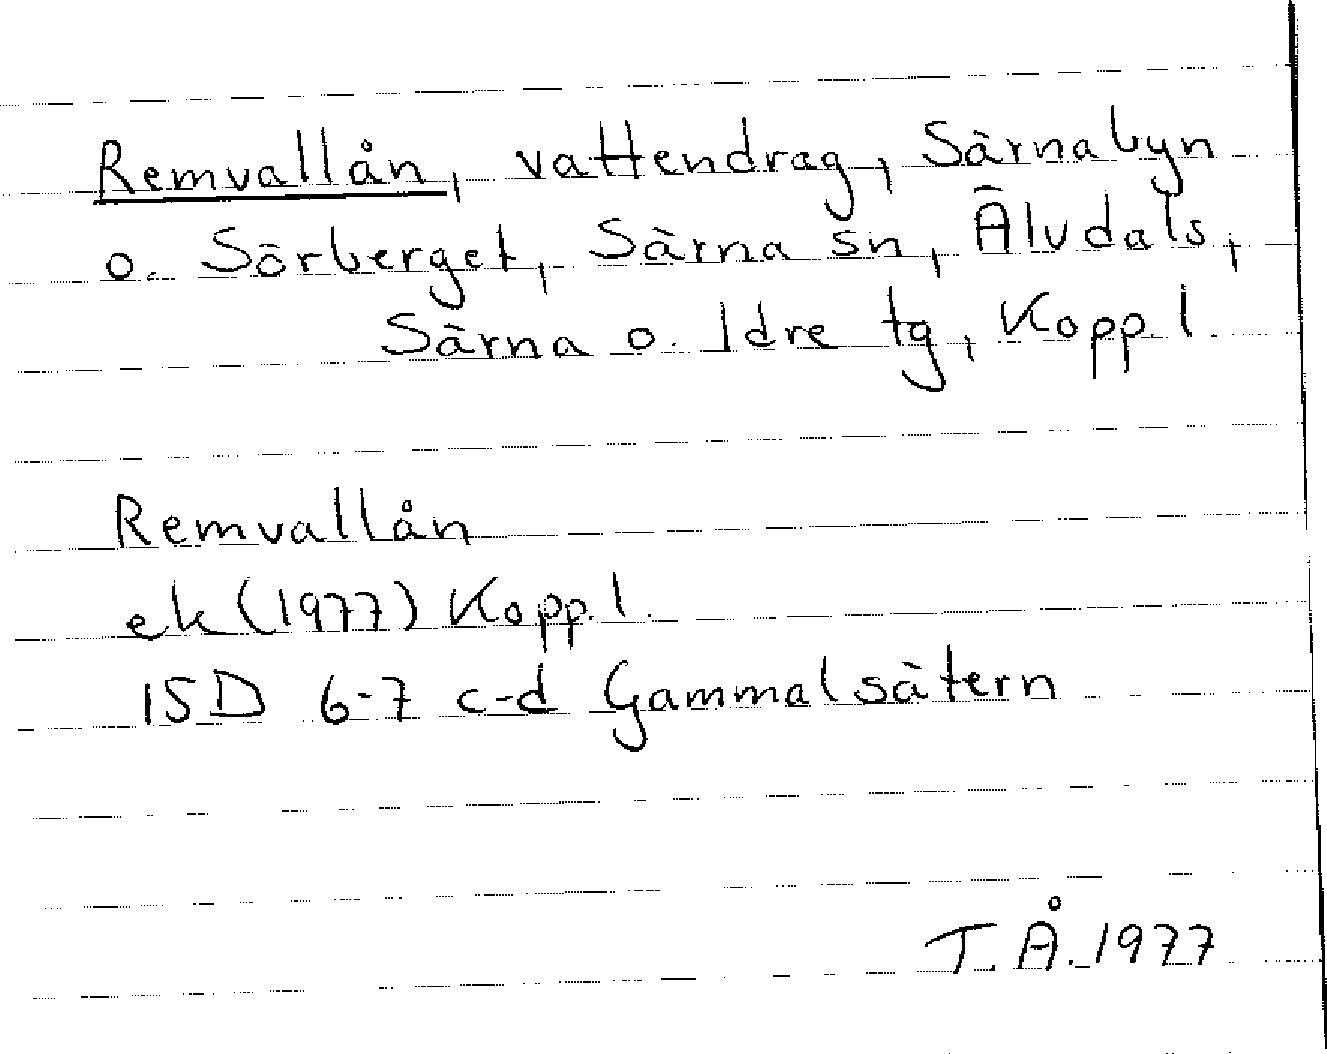 Remvallån, vattendrag, Särnabyn
o. Sörberget, Särna sn, Älvdals,
Särna o. Idre tg, Kopp. l.
Remvallån
ek (1977) Kopp. l.
15D 6-7 c-d Gammalsätern
T. Å. 1977